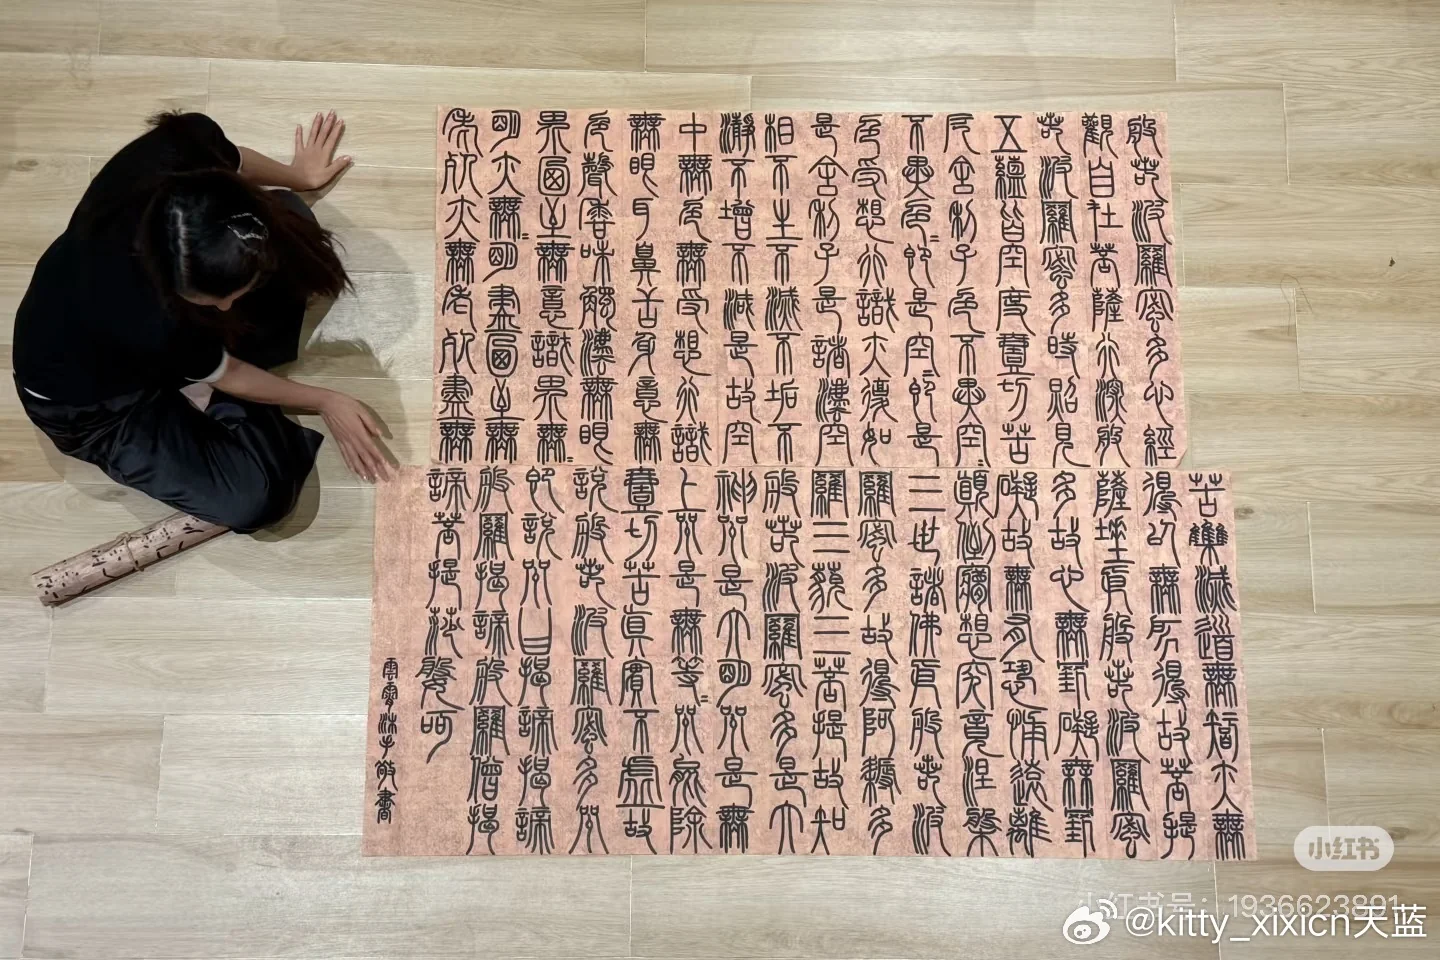 般若波羅蜜多心經
觀自在菩薩行深般
若波羅蜜多時照見
五蘊皆空度壹切苦
厄舍利子色不異空〻
不異色〻即是空〻即是
色受想行識亦復如
是舍利子是諸灋空
相不生不滅不垢不
瀞不增不減是故空
中無色無受想行識
無眼耳鼻舌身意無
色聲香味觸灋無眼
界廼至無意識界無〻
明亦無〻明盡廼至無
老死亦無老死盡無
苦雧滅道無智亦無
得以無所得故菩提
薩埵依般若波羅蜜
多故心無罣礙無罣
礙故無有恐怖遠離
顛倒夢想究竟涅槃
三世諸佛依般若波
羅蜜多故得阿耨多
羅三藐三菩提故知
般若波羅蜜多是大
神咒是大明咒是無
上咒是無等〻咒能除
壹切苦真實不虛故
說般若波羅蜜多咒
即說咒曰揭諦揭諦
般羅揭諦般羅僧揭
諦菩提莎婆呵
沐手敬書
小红书
小红书号：1936623891
@kitty_xixicn天蓝